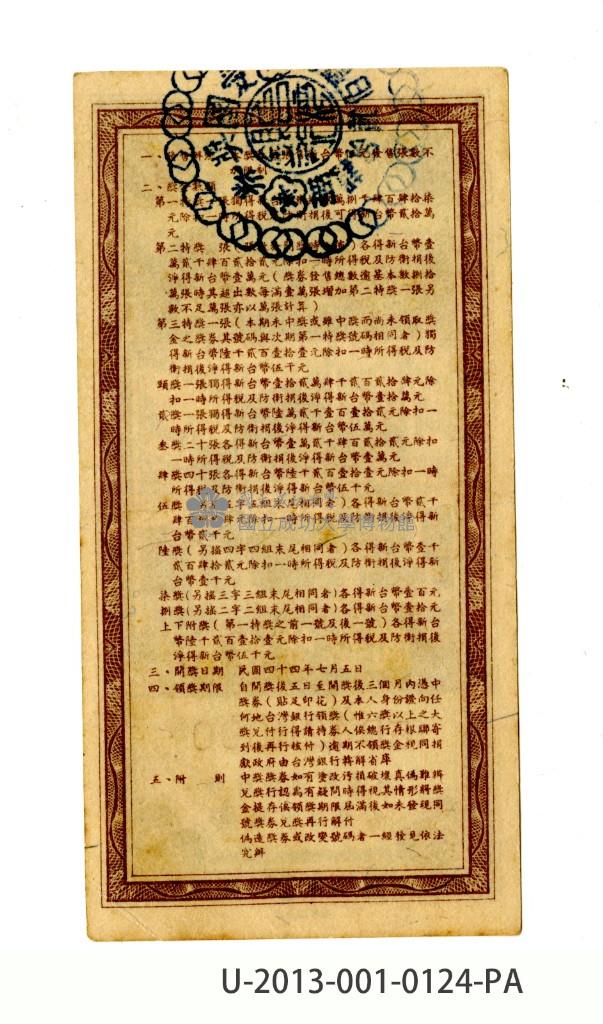 數不
二、
第一 張獨得新台 萬捌千肆百肆拾柒
元除扣一時所得稅及防衛捐後可 新台幣貳拾萬
元
第二特獎 張 各得新台幣壹
萬貳千肆百貳拾貳元除扣一時所得稅及防衛捐後
淨得新台幣壹萬元(獎券發售總數復基本數捌拾
萬張時其超出數每滿壹萬張增加第二特獎一張另
數不足萬張亦以萬張計算)
第三特獎一張(本期未中獎或雖中獎而尚未領取獎
金之獎券其號碼與次期第一特獎號碼相同者)獨
得新台幣陸千貳百壹拾壹元除扣一時所得稅及防
衛捐後淨得新台幣伍千元
頭獎一張獨得新台幣壹拾貳萬肆千貳百貳拾肆元除
扣一時所得稅及防衛捐後淨得新台幣壹拾萬元
貳獎一張獨得新台幣陸萬貳千壹百壹拾貳元除扣一
時所得稅及防衛捐後淨得新台幣伍萬元
叁獎二十張各得新台幣壹萬貳千肆百貳拾貳元除扣
一時所得稅及防衛捐後淨得新台幣壹萬元
肆獎四十張各得新台幣陸千貳百壹拾壹元除扣一時
所得稅及防衛捐後淨得新台幣伍千元
伍獎(另搖五字五組末尾相同者)各得新台幣貳千
肆百 貳元除扣一時所得稅及防衛捐後淨得新
台幣貳千元
國立成功大學博物館
陸獎(另搖四字四組末尾相同者)各得新台幣壹千
貳百肆拾貳元除扣一時所得稅及防衛捐後淨得新
台幣壹千元
柒獎(另搖三字三組末尾相同者)各得新台幣壹百元
捌獎(另搖二字二組末尾相同者)各得新台幣壹拾元
上下附獎(第一特獎之前一號及後一號)各得新台
幣陸千貳百壹拾壹元除扣一時所得稅及防衛捐後
淨得新台幣伍千元
三、開獎日期 民國四十四年七月五日
四、領獎期限 自開獎後五日至開獎後三個月內憑中
獎券(貼足印花)及本人身份證向任
何地台灣銀行領獎(惟六獎以上之大
獎兌付行得請待券人俟總行存根聯寄
到後再行核付)逾期不領獎金視同捐
獻政府由台灣銀行轉解省庫
五、附 則 中獎獎券如有塗改污損破壞真偽難辨
兌獎行認為有疑問時得視其情形將獎
金提存俟領獎期限屆滿後如未發現同
號獎券兌獎再行解付
偽造獎券或改變號碼者一經發見依法
究辦
U-2013-001-0124-PA